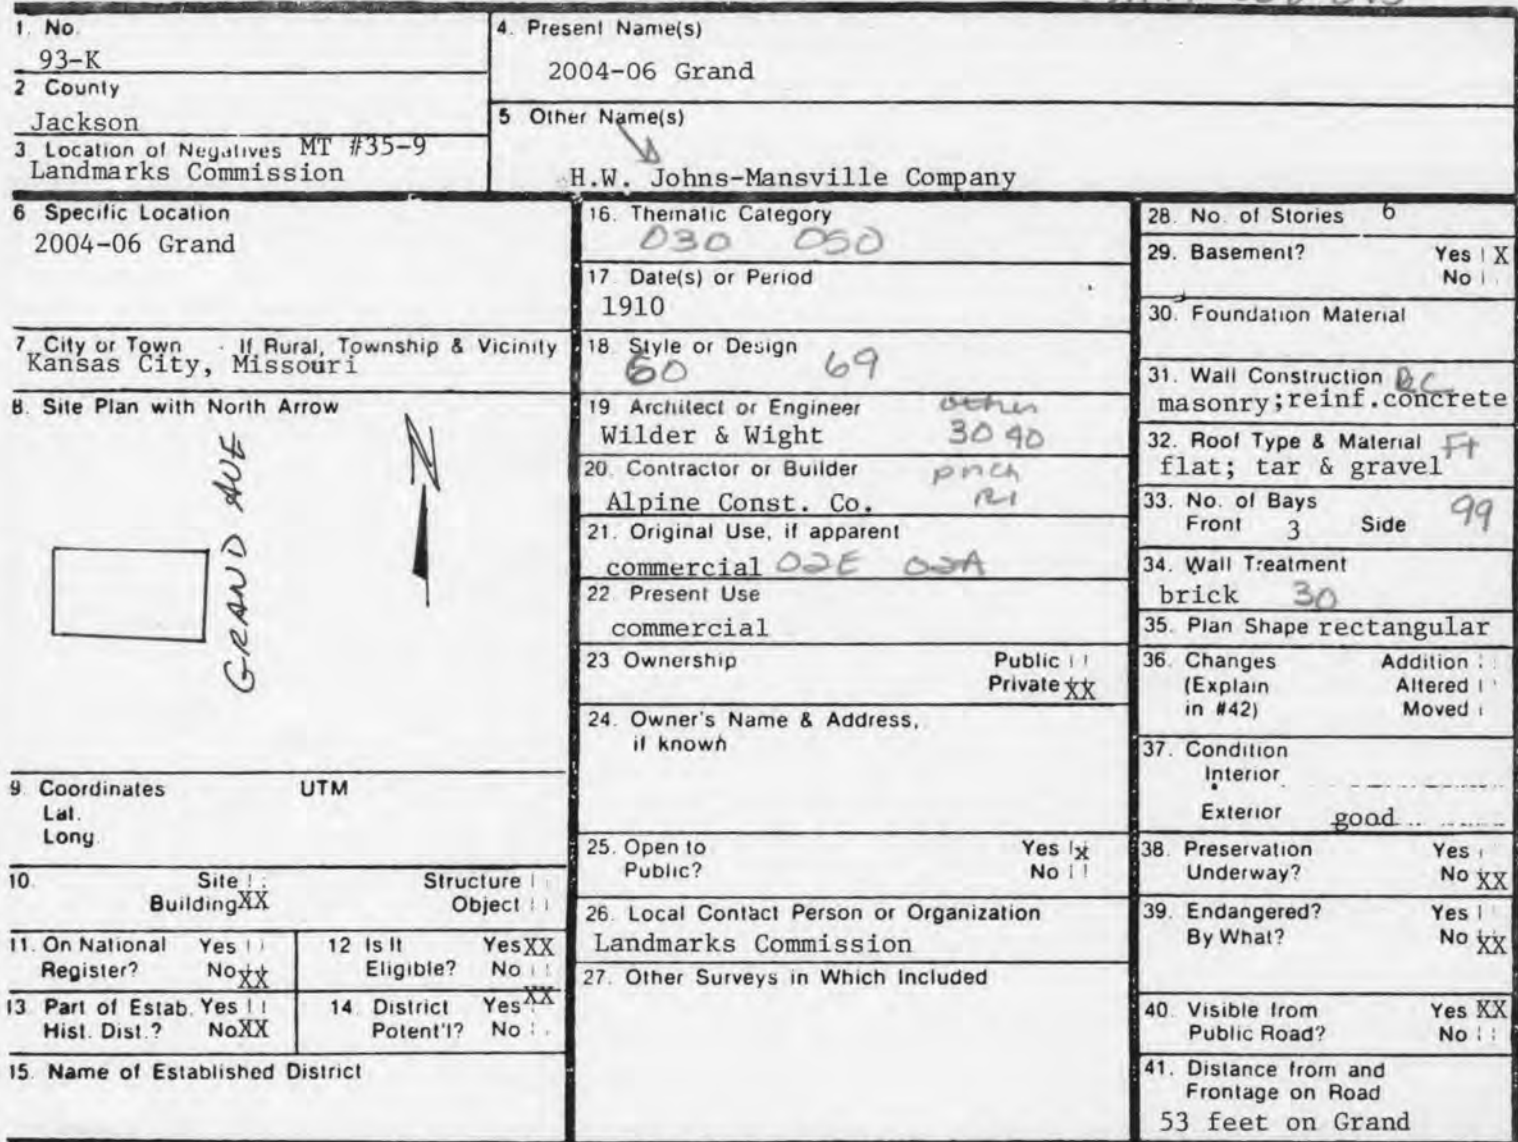 1. No.
93-K
4. Present Name(s)
2004-06 Grand
2 County
Jackson
5 Other Name(s)
H.W. Johns-Mansville Company
3 Location of Negatives MT #35-9
Landmarks Commission
6 Specific Location
2004-06 Grand
7 City or Town If Rural, Township & Vicinity
Kansas City, Missouri
8. Site Plan with North Arrow
GRAND AVE
N
9. Coordinates UTM
Lat.
Long.
10. Site Structure
Building XX Object
11. On National Yes
Register? No XX
12 Is It Yes XX
Eligible? No
13 Part of Estab. Yes
Hist. Dist.? No XX
14. District Yes XX
Potent'l? No
15. Name of Established District
16. Thematic Category
030 050
17. Date(s) or Period
1910
18. Style or Design
60 69
19. Architect or Engineer other
Wilder & Wight 30 40
20. Contractor or Builder
Alpine Const. Co.
21. Original Use, if apparent
commercial 02E 02A
22. Present Use
commercial
23 Ownership Public
Private XX
24. Owner's Name & Address,
if known
25. Open to Yes x
Public? No
26. Local Contact Person or Organization
Landmarks Commission
27. Other Surveys in Which Included
28. No. of Stories 6
29. Basement? Yes X
No
30. Foundation Material
31. Wall Construction
masonry; reinf. concrete
32. Roof Type & Material Ft
flat; tar & gravel
33. No. of Bays 99
Front 3 Side
34. Wall Treatment
brick 30
35. Plan Shape rectangular
36. Changes Addition
(Explain Altered
in #42) Moved
37. Condition
Interior
Exterior good
38. Preservation Yes
Underway? No XX
39. Endangered? Yes
By What? No XX
40. Visible from Yes XX
Public Road? No
41. Distance from and
Frontage on Road
53 feet on Grand